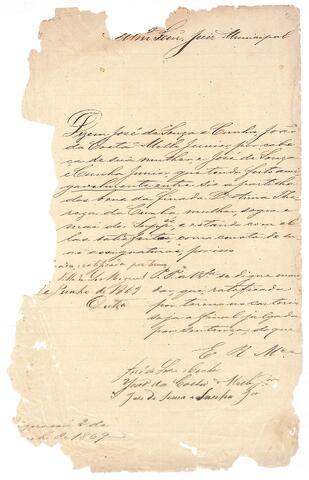 Illmo Senr Juiz Municipal
Dizem José de Souza e Cunha, João
da Costa Mello Junior, por cabe
ça de sua mulher, e José de Souza
e Cunha Junior, que tendo feito ami
gavelmente entre si a partilha
dos bens da finada D. Anna The
reza da Cunha, mulher, sogra e
mai dos Suppes e estando com el
las satisfeitos, como consta de su
as assignaturas, por isso
ratificada por termo
P. P. a V. Sa se digne man
de Junho de 1869
dar que, ratificada
Dutra
por termo no cartorio
seja a final julgada
por sentença, do que
E R Mce
José de Souza e Cunha
João da Costa Mello Jor
José de Souza e Cunha Jor
2 de
de 1869